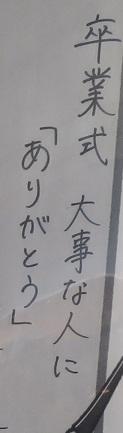 卒業式 大事な人に
「ありがとう」